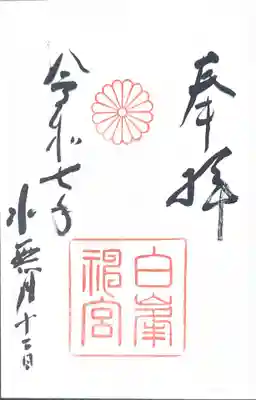 奉拝
白峯神宮
令和七年
水無月十二日